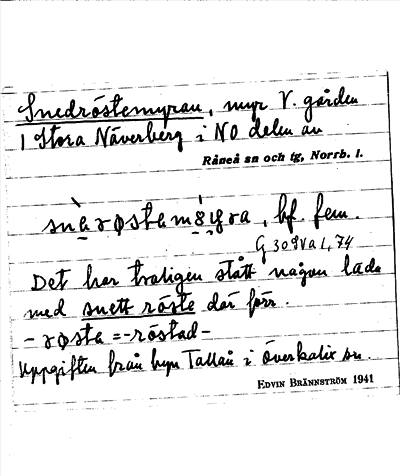 Snedröstemyran, myr V. gården
1 Stora Näverberg i NO delen av
Råneå sn och tg, Norrb. l.
snèrøstamỳra, bf. fem.
G 309 Va 1, 74
Det har troligen stått någon lada
med snett röste där förr.
- røsta = -röstad-
Uppgiften från byn Tallån i Överkalix sn.
EDVIN BRÄNNSTRÖM 1941